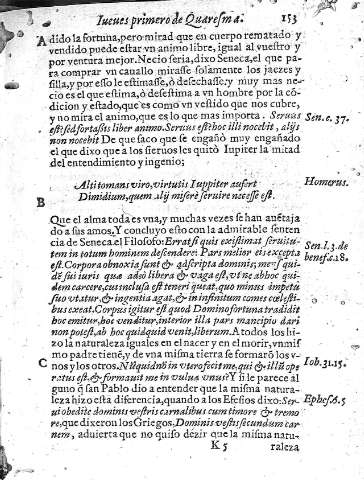 Iueues primero de Quaresma. 153
A dido la fortuna, pero mirad que en cuerpo rematado y
vendido puede estar vn animo libre, igual al vuestro y
por ventura mejor. Necio seria, dixo Seneca, el que pa
ra comprar vn cauallo mirasse solamente los jaezes y
silla, y por esso le estimasse, ò desechasse, y muy mas ne-
cio es el que estima, ò desestima a vn hombre por la cõ-
dicion y estado, que es como vn vestido que nos cubre,
y no mira el animo, que es lo que mas importa. Seruus
est: sed fortassis liber animo. Seruus est: hoc illi nocebit, alijs
non nocebit De que saco que se engañò muy engañado
el que dixo que a los sieruos les quitò Iupiter la mitad
del entendimiento y ingenio;
Sen. e. 37.
Altitonans viro, virtutis Iuppiter aufert
Dimidium, quem alij miserè seruire necesse est.
Homerus.
B
Que el alma toda es vna, y muchas vezes se han auētaja
do a sus amos, Y concluyo esto con la admirable senten
cia de Seneca el Filosofo: Errat si quis existimat seruitu-
tem in totum hominem descendere: Pars melior eis excepta
est. Corpora obnoxia sunt & adscripta dominis; mens qui-
dē sui iuris quæ adeò libera & vaga est, vt ne ab hoc qui-
dem carcere, cui inclusa est teneri queat, quo minus impetu
suo vtatur, & ingentia agat, & in infinitum comes cœlesti
bus exeat. Corpus igitur est quod Domino fortuna tradidit
hoc emitur, hoc venditur, interior illa pars mancipio dari
non potest, ab hoc quidquid venit, liberum. A todos los hi-
zo la naturaleza iguales en el nacer y en el morir, vn mis
mo padre tienē, y de vna misma tierra se formarō los v-
nos y los otros. Nūquid nō in vtero fecit me, qui & illū ope
ratus est, & formauit me in vulua vnus? Y si le parece al
guno q̃ san Pablo dio a entender que la misma natura-
leza hizo esta diferencia, quando a los Efesios dixo: Ser
ui obedite dominis vestris carnalibus cum timore & tremo
re, que dixeron los Griegos, Dominis vestris secundum car
nem, aduierta que no quiso dezir que la misma natu-
Sen. l. 3. de
benef. c. 18.
C
Iob. 31. 15.
Ephes. 6. 5
K 5 raleza